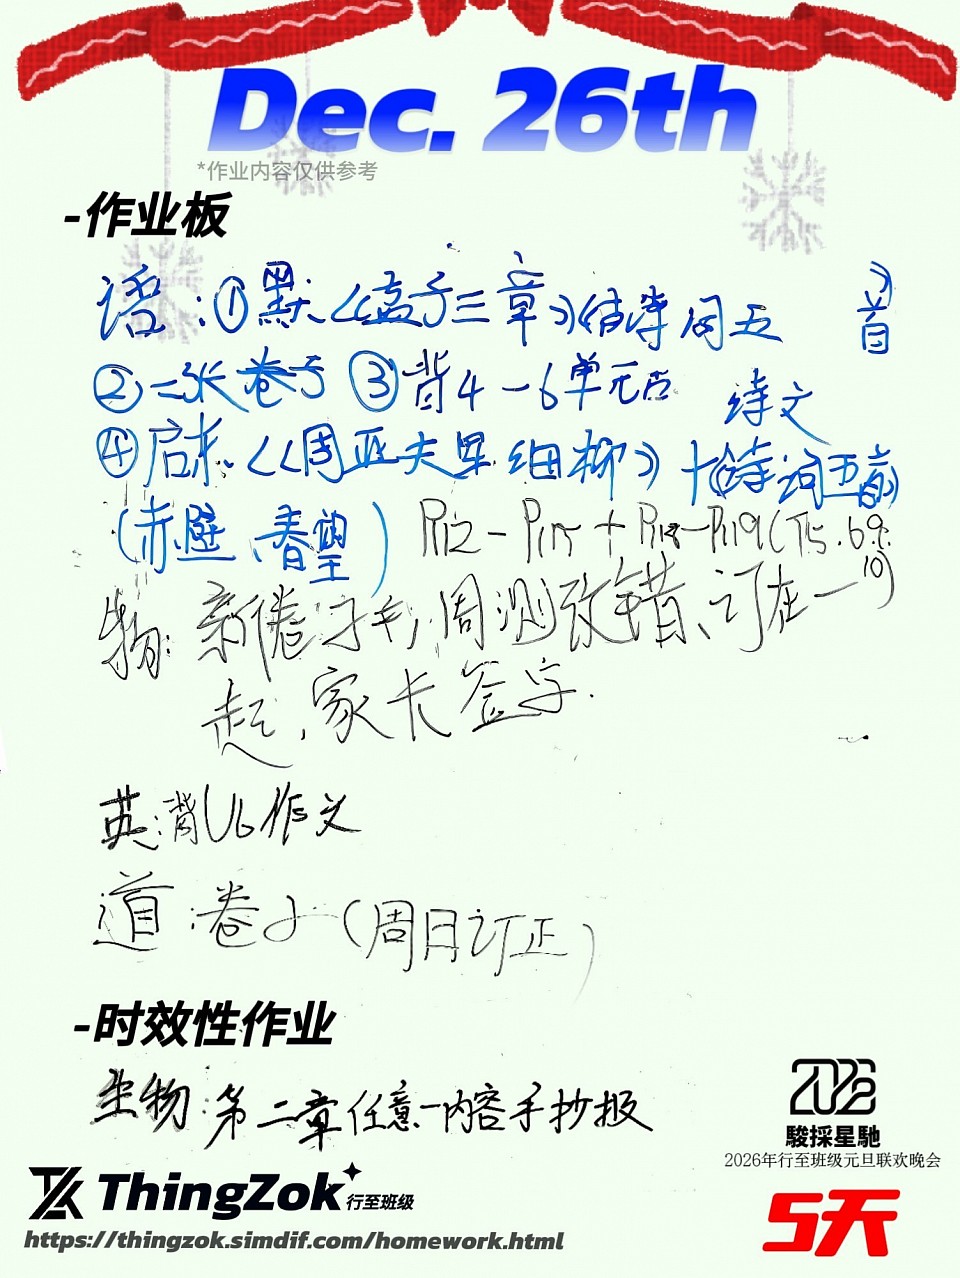 Dec. 26th
*作业内容仅供参考
-作业板
语:①默《孟子三章》《诗词五首》
②二张卷子 ③背4-6单元古诗文
④启东《周亚夫军细柳》+《诗词五首》
(赤壁、春望) P112-P115+P118-P119(T5.6.9.10)
物:新卷子卡,周测改错、订在一
起,家长签字.
英:背U6作文
道:卷子(周日订正)
-时效性作业
生物:第二章任意一内容手抄报
2026
駿採星馳
2026年行至班级元旦联欢晚会
ThingZok 行至班级
https://thingzok.simdif.com/homework.html
5天